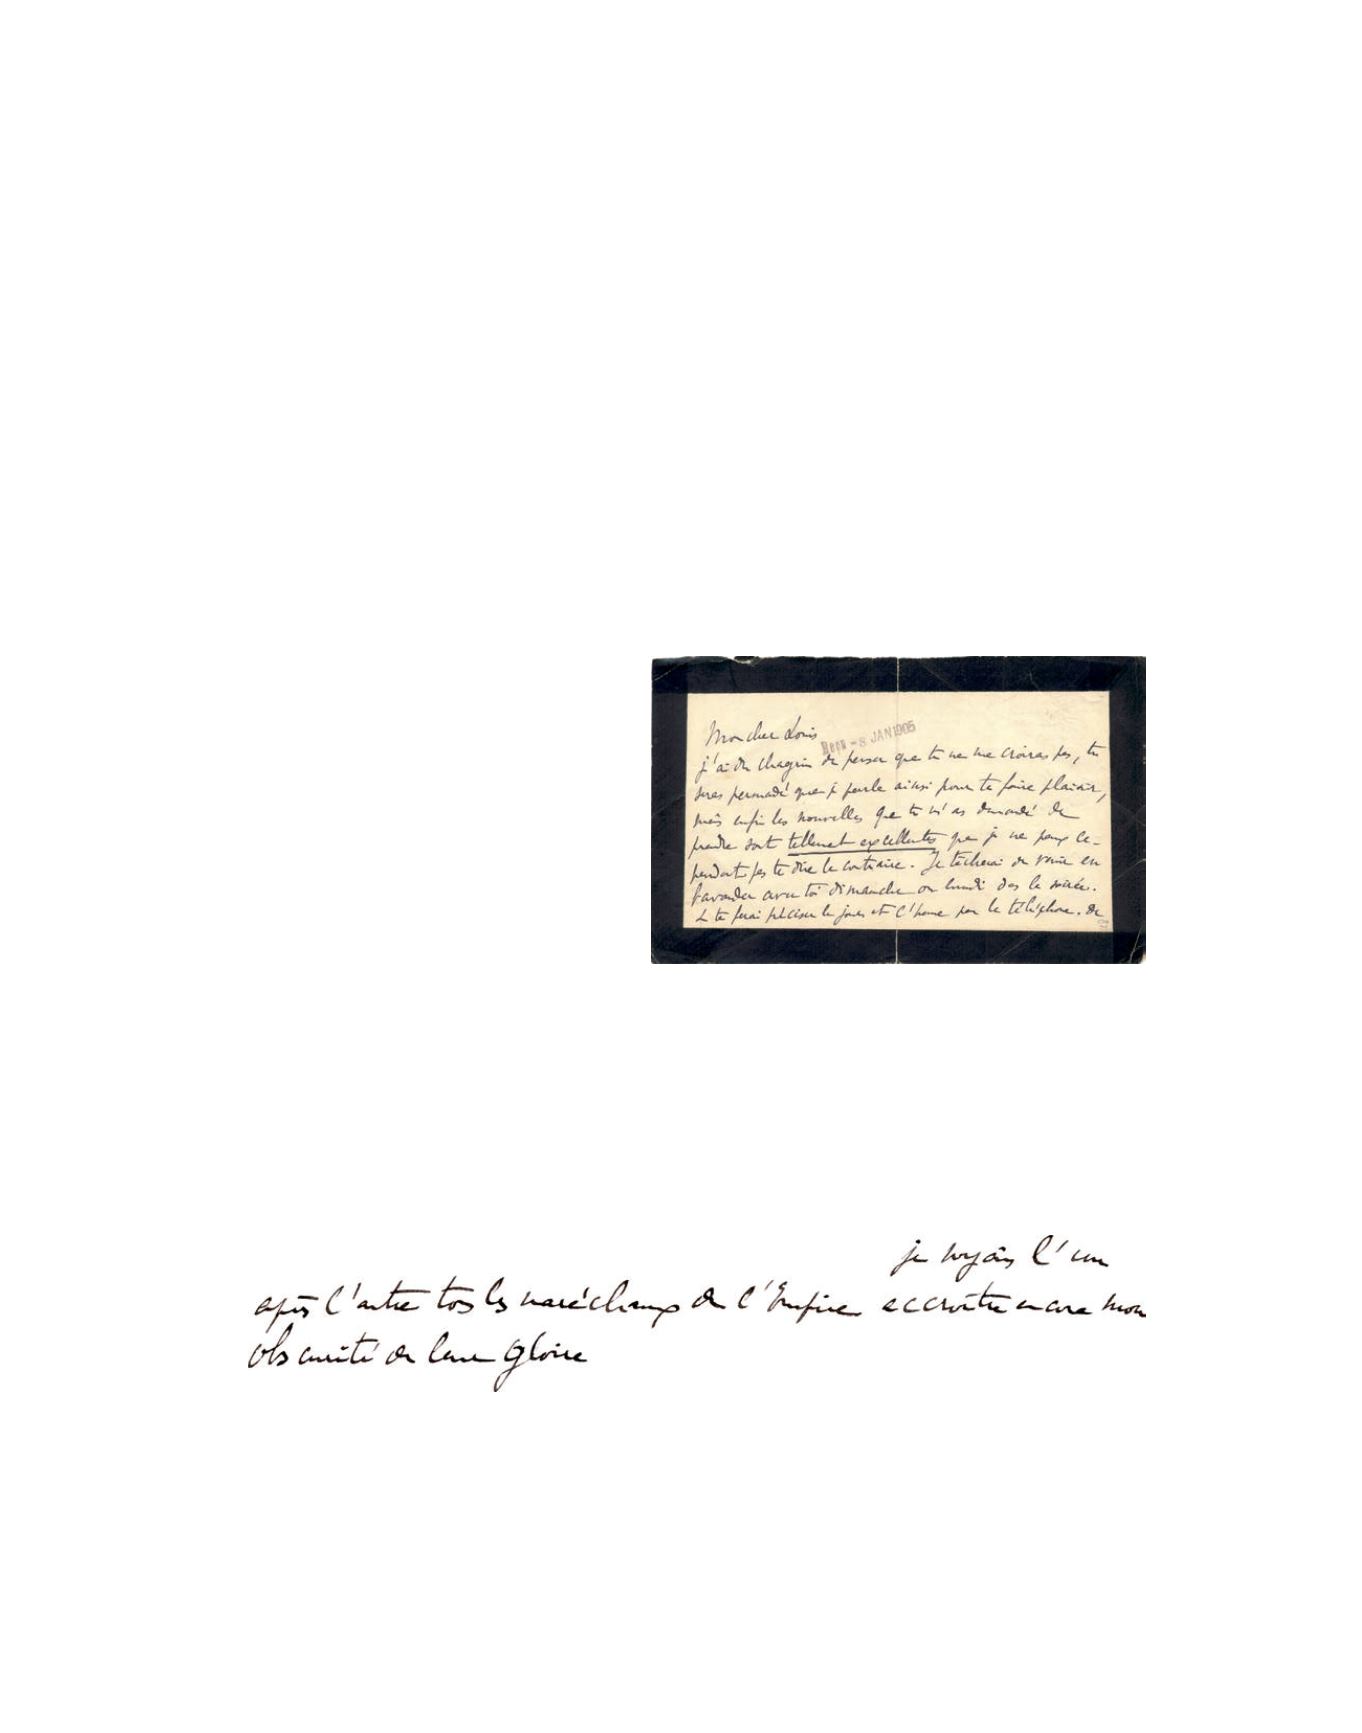 Mon cher Louis
Reçu - 8 JAN 1905
j'ai du chagrin de penser que tu ne me croiras pas, tu
seras persuadé que je parle ainsi pour te faire plaisir,
mais enfin les nouvelles que tu m'as demandé de
prendre sont tellement excellentes que je ne peux ce-
pendant pas te dire le contraire. Je tâcherai de venir en
bavarder avec toi dimanche ou lundi dans la soirée.
te ferai préciser le jour et l'heure par le téléphone. De
je voyais l'un
après l'autre tous les maréchaux de l'Empire accroître encore mon
obscurité de leur gloire